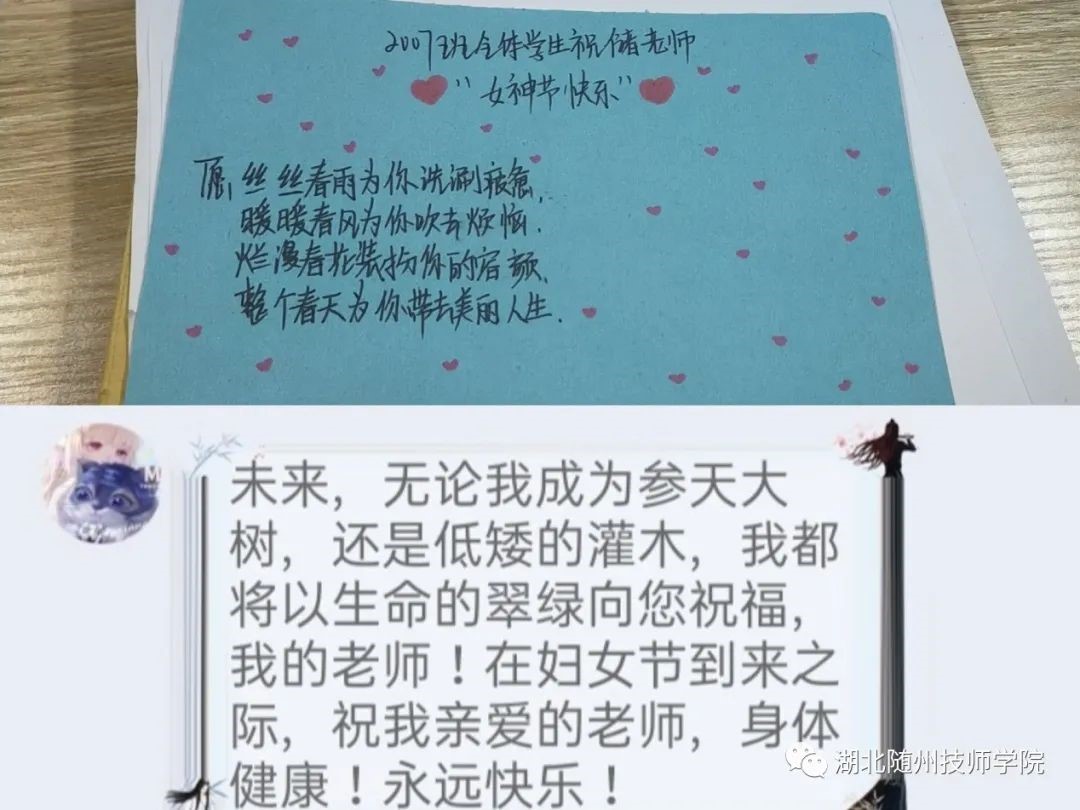 2007班全体学生祝储老师
"女神节快乐"
愿丝丝春雨为你洗涮疲惫,
暖暖春风为你吹去烦恼.
烂漫春花装扮你的容颜.
整个春天为你带去美丽人生.
未来，无论我成为参天大
树，还是低矮的灌木，我都
将以生命的翠绿向您祝福，
我的老师！在妇女节到来之
际，祝我亲爱的老师，身体
健康！永远快乐！
湖北随州技师学院